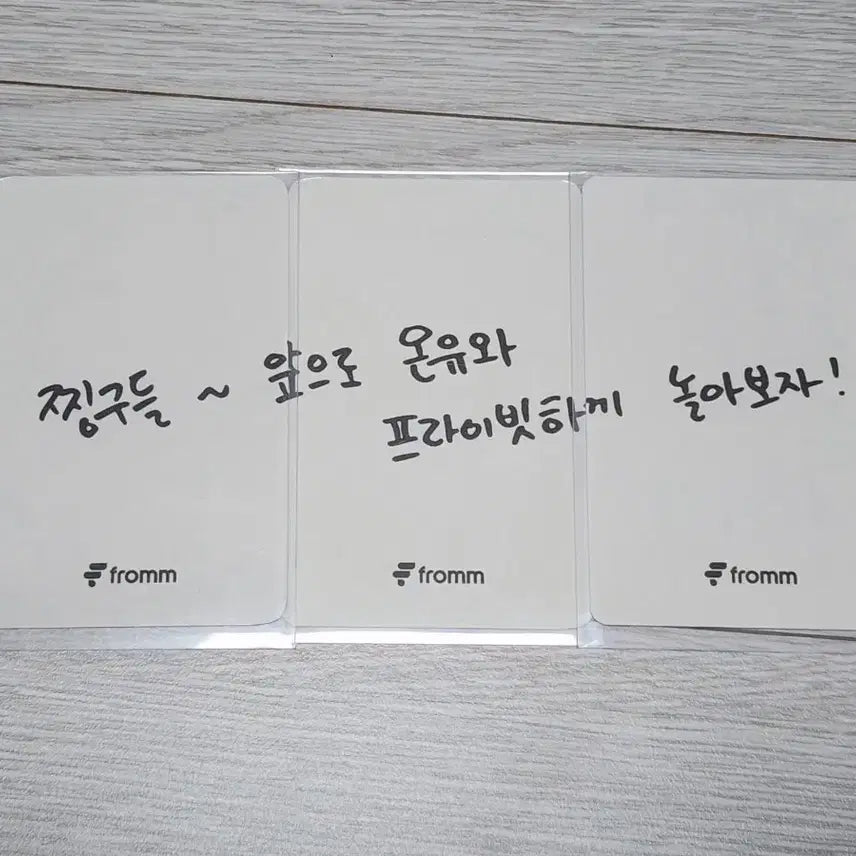 찡구들 ~ 앞으로 온유와
프라이빗하게 놀아보자!
fromm fromm fromm